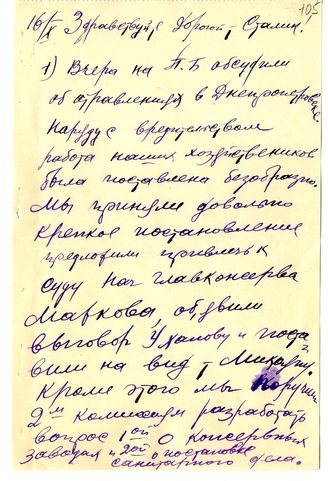 105
16/X Здравствуй, дорогой т. Сталин.
1) Вчера на П.Б обсудили
об отравлениях в Днепропетровске
Наряду с вредительством
работа наших хозяйственников
была поставлена безобразно.
Мы приняли довольно
крепкое постановление
предложили привлечь к
суду нач главконсерва
Маркова, об,явили
выговор Уханову и поста
вили на вид т. Микояну.
Кроме этого мы поручили
2м комиссиям разработать
вопрос 1ой о консервных
заводах и 2ой о постановке
санитарного дела.